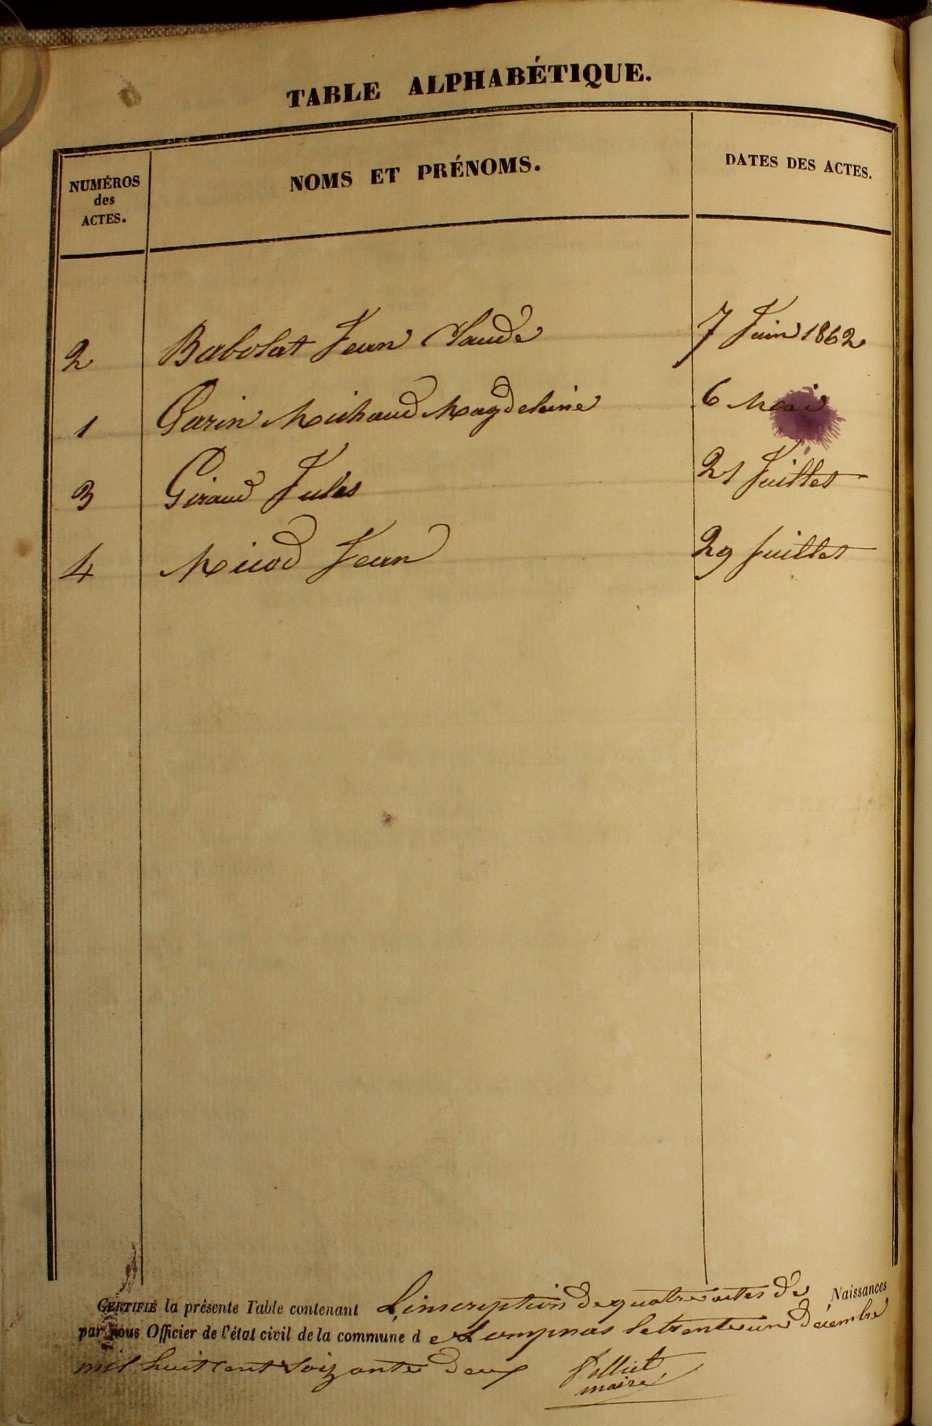 TABLE ALPHABÉTIQUE.
NUMÉROS des ACTES. NOMS ET PRÉNOMS. DATES DES ACTES.
2 Babolat Jean Claude 7 Juin 1862
1 Garin Michaud Magdeleine 6 Mai
3 Giraud Jules 21 Juillet
4 Micod Jean 29 Juillet
CERTIFIÉ la présente Table contenant L'inscription de quatre actes de Naissances
par nous Officier de l'état civil de la commune d e Lompnas le trente un Décembre
mil huit cent soixante deux Pelliet
maire